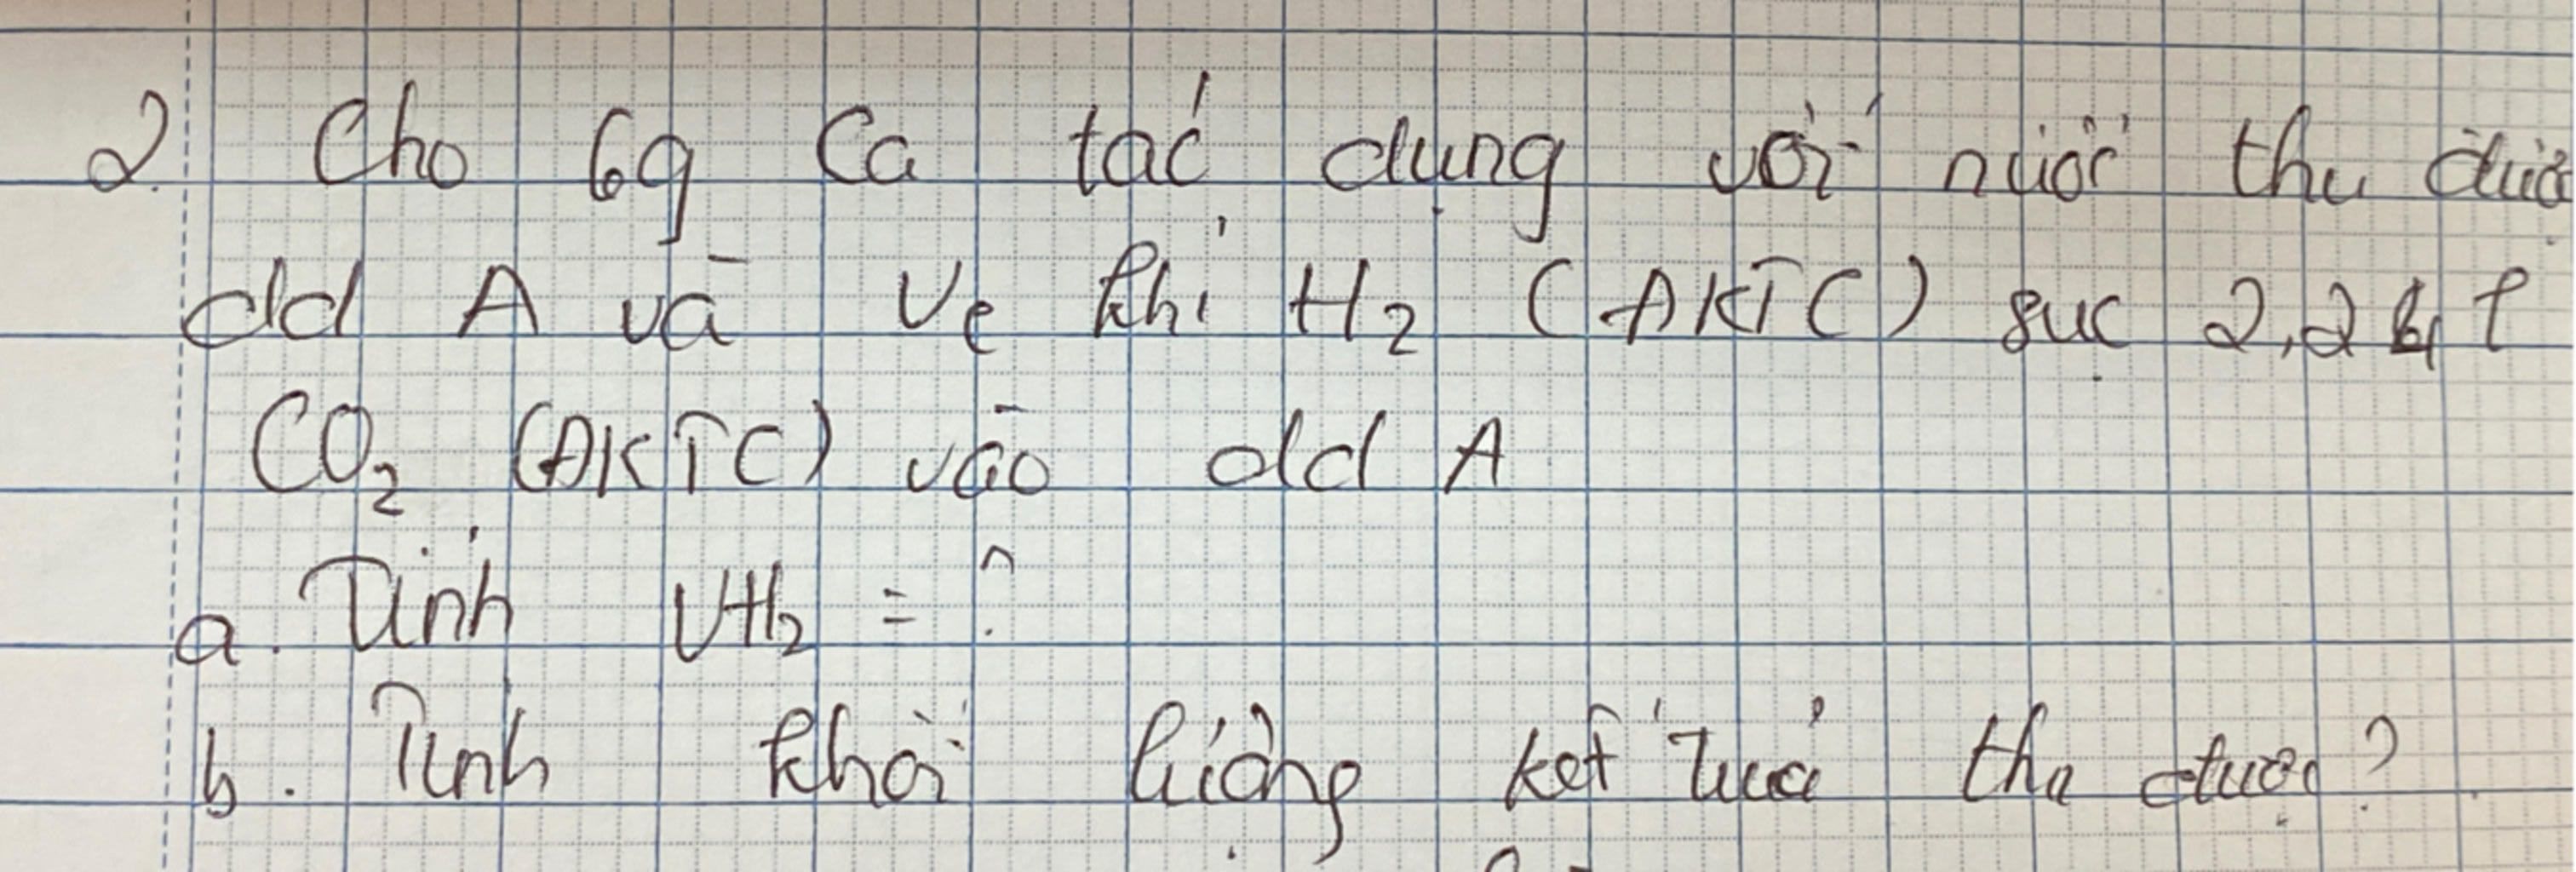 2. Cho 6g Ca tác dụng với nước thu được
dd A và Vℓ khí H₂ (ĐKTC) sục 2,24 ℓ
CO₂ (ĐKTC) vào dd A
a. Tính VH₂ = ?
b. Tính khối lượng kết tủa thu được?